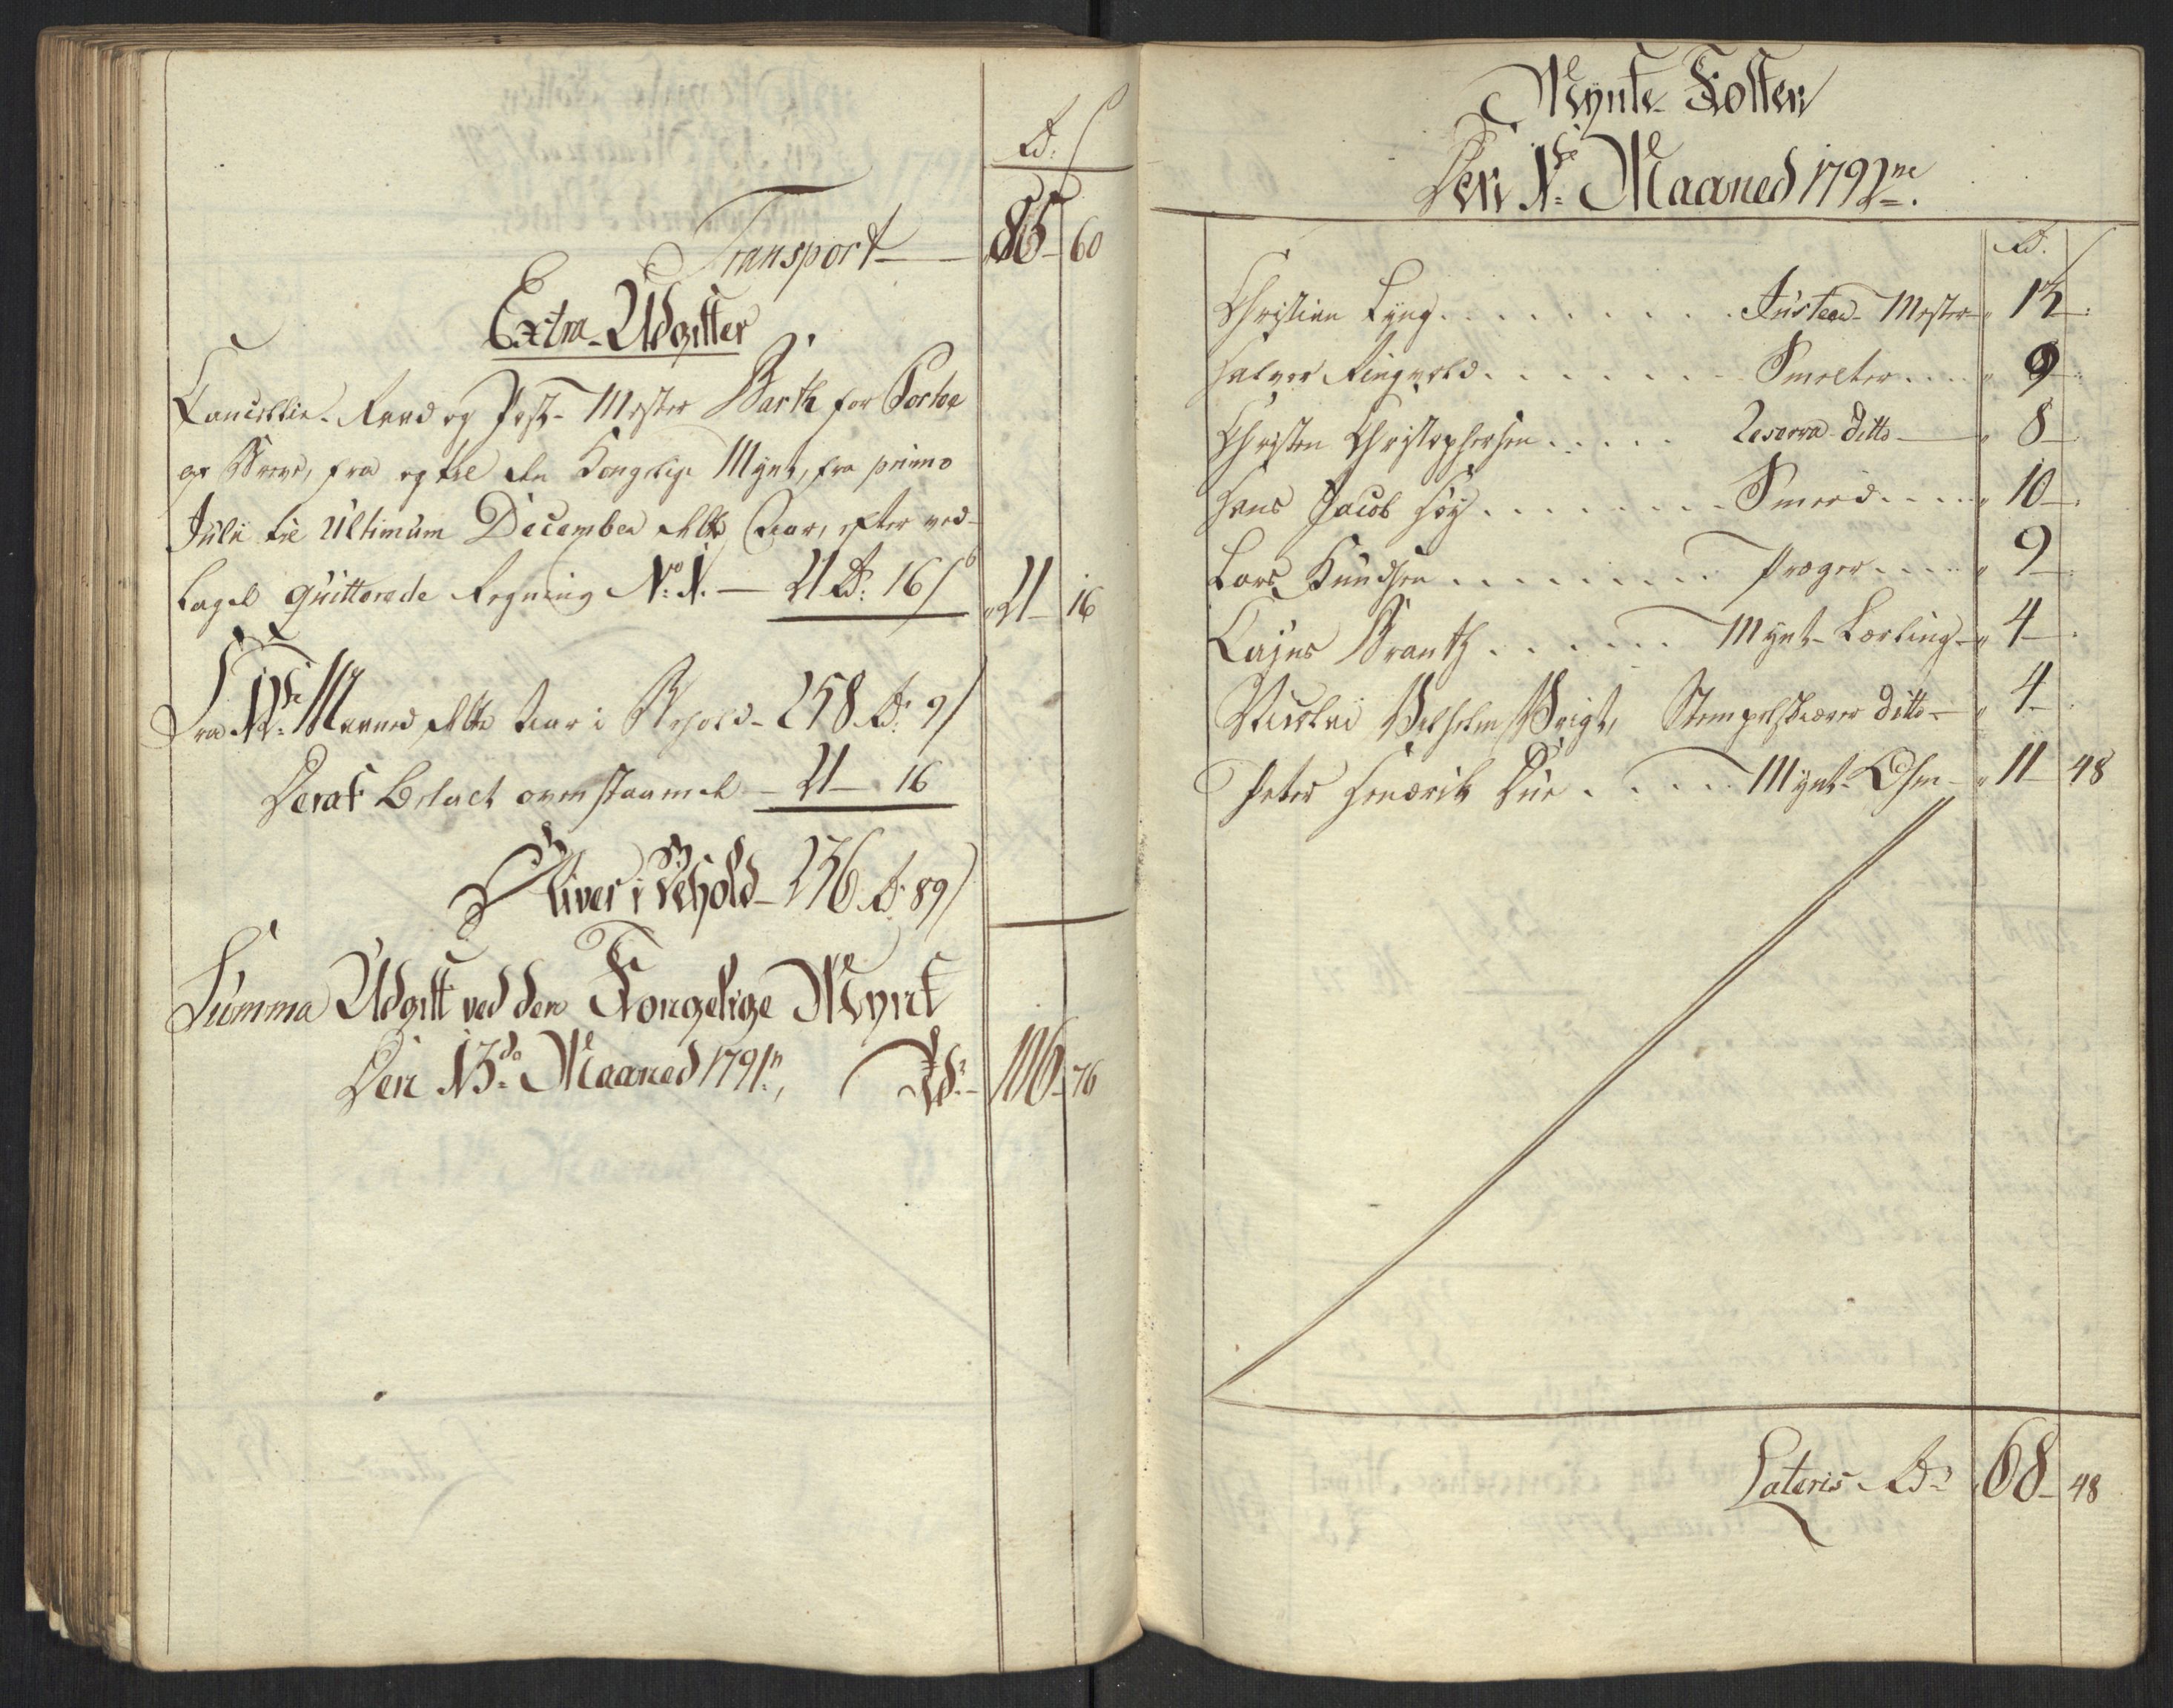 Rd. s
Transport 85 60
Extra-Udgifter
Cancellie-Raad og Post-Mester Barth for Porto
af Breve, fra og til den Kongelige Mynt, fra primo
Julii til Ultimum December dette Aar, efter ved-
lagde quitterede Regning No. 1. — 21 Rd: 16 s 21 16
Fra 12te Maaned dette Aar i Behold - 258 Rd: 9 s
Deraf betalt ovenstaaende - 21 - 16
Bliver i Behold - 236 Rd: 89 s
Summa Udgift ved den Kongelige Mynt
Den 13de Maaned 1791, Rd:- 106 76
Mynte-Folket
Den 1ste Maaned 1792ne.
Rd. s
Christian Lyng Justeer-Mester 13
Halvor Ringvold Smelter 9
Christen Christophersen Reserva ditto 8
Hans Jacob Høy Smeed 10
Lars Knudsen Præger 9
Cajus Branth Mynt-Lærling 4
Nicolai Velhelm Weigt, Stempelskærer ditto 4
Peter Hendrik Due Mynt- 11 48
Lateris Rd: 68 48